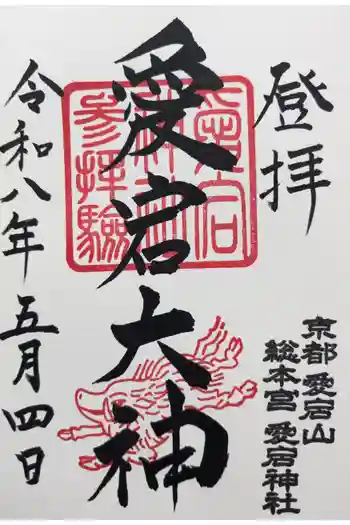 登拝
愛宕大神
愛宕神社参拝験
京都愛宕山
総本宮愛宕神社
令和八年五月四日